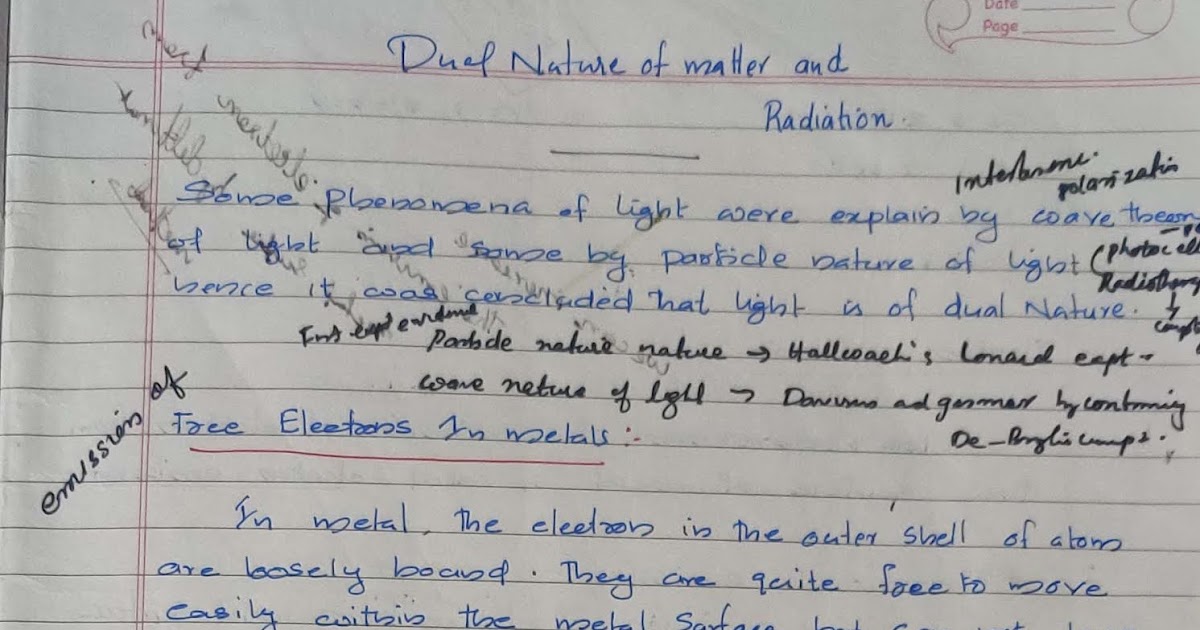 Date
Page
Dual Nature of matter and
Radiation.
Interference.
polarization
Some Phenomena of light were explain by wave theory
of light and some by particle nature of light (photocell
Radiotherapy
hence it was concluded that light is of dual Nature.
First expt evidence Particle nature nature → Hallwach's Lenard expt
wave nature of light → Davisson and germer by confirming
De-Broglie
emission of
Free Electrons In metals :-
In metal, the electron in the outer shell of atom
are loosely bound. They are quite free to move
easily within the metal surface but